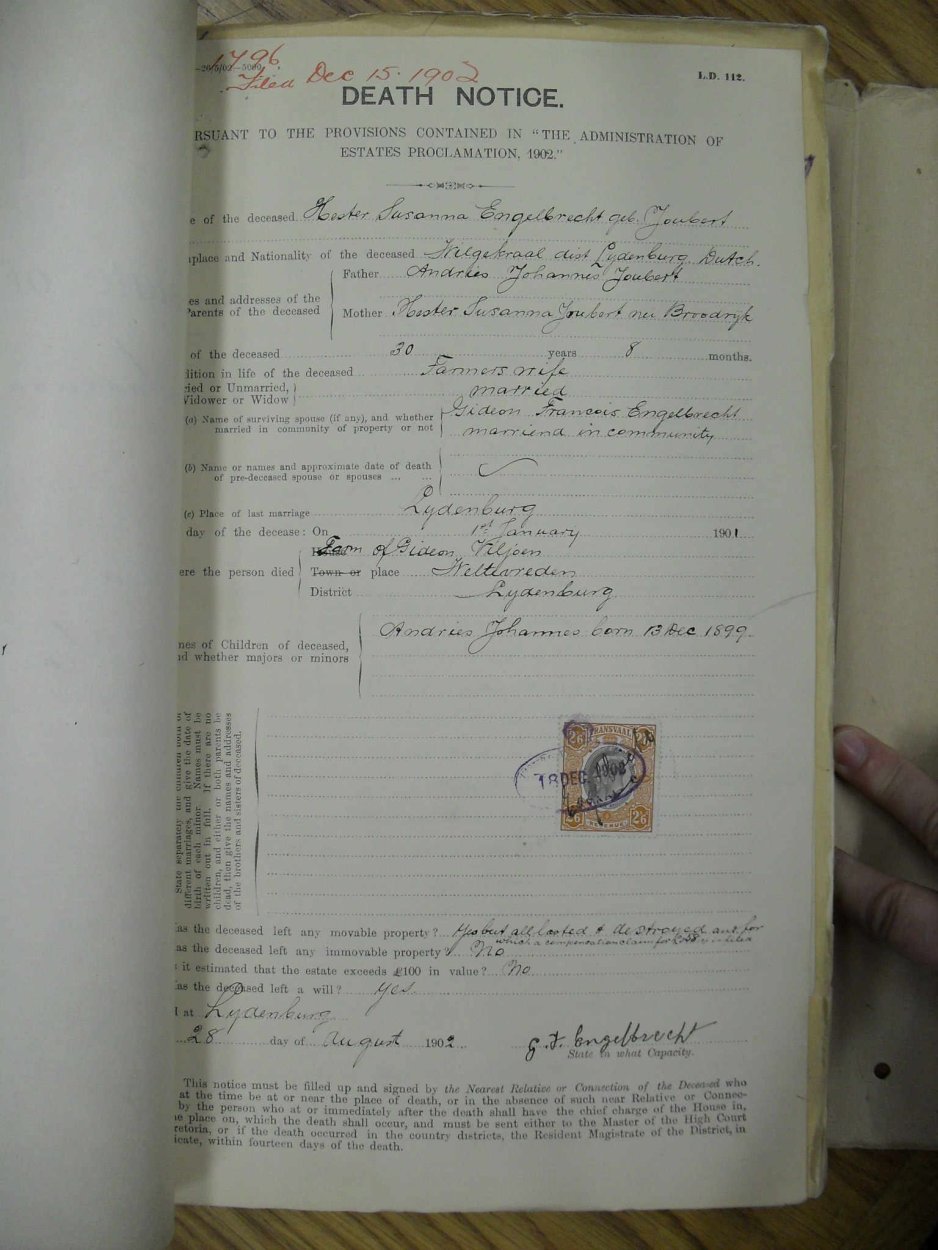 1796.
—26/5/02—5000
Filed Dec 15. 1902
L.D. 112.
DEATH NOTICE.
RSUANT TO THE PROVISIONS CONTAINED IN "THE ADMINISTRATION OF
ESTATES PROCLAMATION, 1902."
e of the deceased Hester Susanna Engelbrecht geb. Joubert
place and Nationality of the deceased Wilgekraal dist Lydenburg. Dutch.
Father Andries Johannes Joubert
es and addresses of the
Parents of the deceased
Mother Hester Susanna Joubert neé Broodryk
of the deceased 30 years 8 months.
dition in life of the deceased Farmers wife
ried or Unmarried,
Widower or Widow
married
(a) Name of surviving spouse (if any), and whether
married in community of property or not
Gideon Francois Engelbrecht
marriend in community
(b) Name or names and approximate date of death
of pre-deceased spouse or spouses ... ...
(c) Place of last marriage Lydenburg
day of the decease: On 1st January 1901
House Farm of Gideon Viljoen
ere the person died Town or place Weltevreden
District Lydenburg
Andries Johannes born 13 Dec 1899.
nes of Children of deceased,
nd whether majors or minors
State separately the children born of
different marriages, and give the date of
birth of each minor. Names must be
written out in full. If there are no
children, and either or both parents be
dead, then give the names and addresses
of the brothers and sisters of deceased.
TRANSVAAL
2/6
18 DEC 1902
2/6 2/6
as the deceased left any movable property? Yes but all looted & destroyed and for
which a compensation claim for is filed
as the deceased left any immovable property? No
s it estimated that the estate exceeds £100 in value? No
as the deceased left a will? yes
d at Lydenburg
28 day of August 1902
G. F. Engelbrecht
State in what Capacity.
This notice must be filled up and signed by the Nearest Relative or Connection of the Deceased who
at the time be at or near the place of death, or in the absence of such near Relative or Connec-
by the person who at or immediately after the death shall have the chief charge of the House in,
he place on, which the death shall occur, and must be sent either to the Master of the High Court
retoria, or if the death occurred in the country districts, the Resident Magistrate of the District, in
icate, within fourteen days of the death.